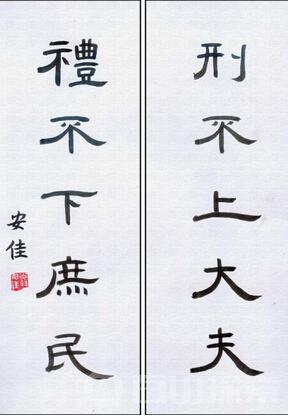 刑不上大夫
禮不下庶民
安佳